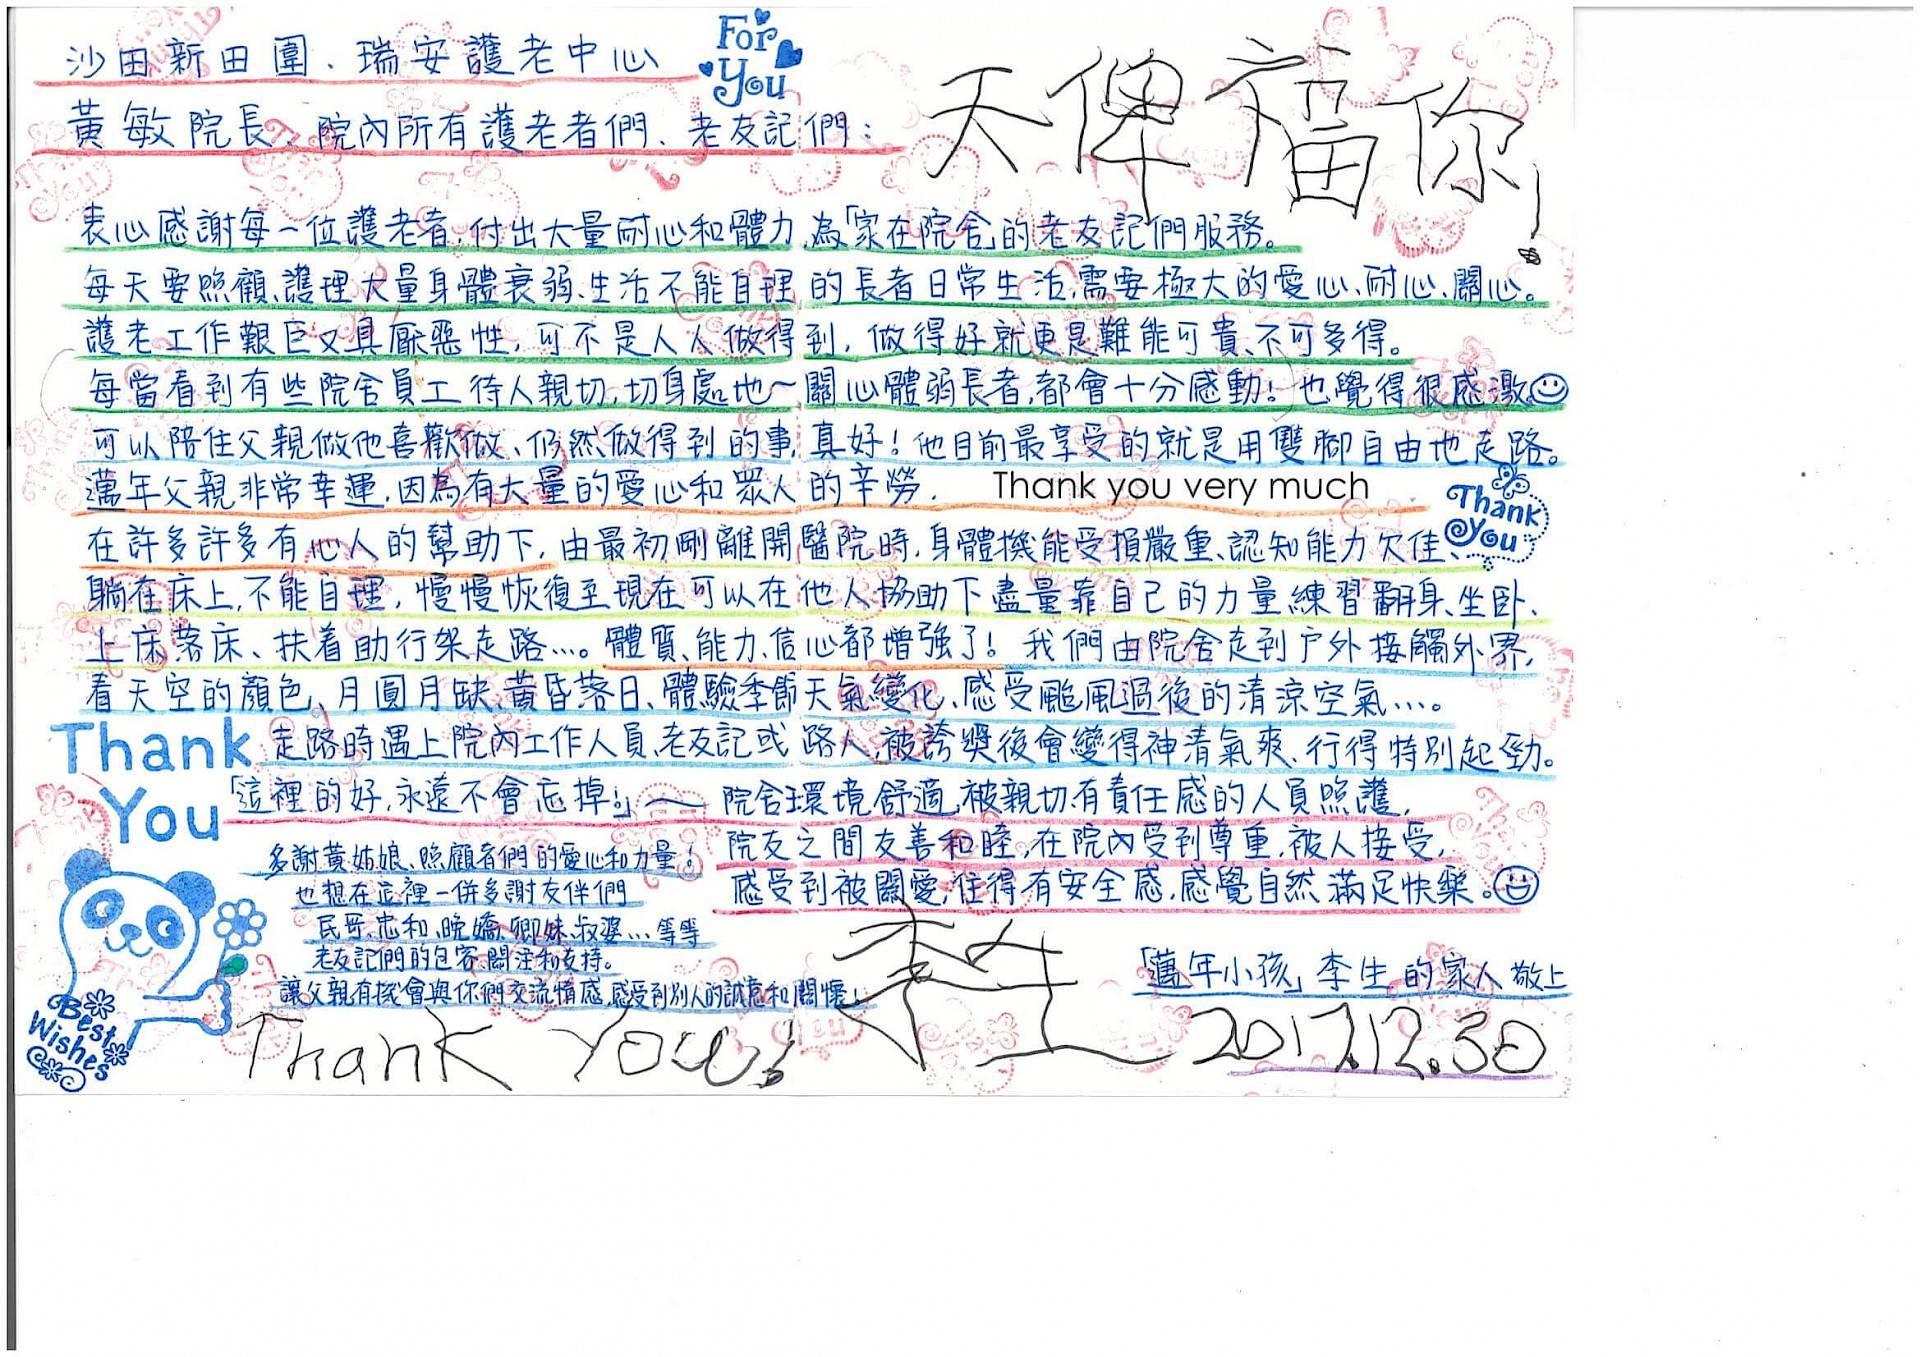 沙田新田圍、瑞安護老中心
For You
黃敏院長、院內所有護老者們、老友記們：
天俾福你!
衷心感謝每一位護老者,付出大量耐心和體力,為「家在院舍」的老友記們服務。
每天要照顧、護理大量身體衰弱、生活不能自理的長者日常生活,需要極大的愛心、耐心、關心。
護老工作艱巨又具厭惡性,可不是人人做得到,做得好就更是難能可貴、不可多得。
每當看到有些院舍員工待人親切,切身處地~關心體弱長者,都會十分感動!也覺得很感激
可以陪住父親做他喜歡做、仍然做得到的事,真好!他目前最享受的就是用雙腳自由地走路。
萬年父親非常幸運,因為有大量的愛心和眾人的辛勞.
Thank you very much
Thank You
在許多許多有心人的幫助下,由最初剛離開醫院時,身體機能受損嚴重、認知能力欠佳、
躺在床上,不能自理,慢慢恢復至現在可以在他人協助下盡量靠自己的力量練習翻身、坐卧、
上床落床、扶着助行架走路…。體質、能力、信心都增強了!我們由院舍走到戶外接觸外界,
看天空的顏色、月圓月缺、黃昏落日、體驗季節天氣變化、感受颱風過後的清涼空氣…。
Thank You
走路時遇上院內工作人員、老友記或路人,被誇獎後會變得神清氣爽、行得特別起勁。
「這裡的好,永遠不會忘掉!」
院舍環境舒適,被親切有責任感的人員照護,
院友之間友善和睦,在院內受到尊重,被人接受,
感受到被關愛,住得有安全感,感覺自然滿足快樂。
多謝黃姑娘、照顧者們的愛心和力量!
也想在這裡一併多謝友伴們
民哥、忠和、晚嬌、卿妹、淑婆…等等
老友記們的包容、關注和支持。
讓父親有機會與你們交流情感,感受到別人的誠意和關懷!
Best Wishes
Thank You!
李生
「萬年小孩」李生的家人敬上
2017.12.30